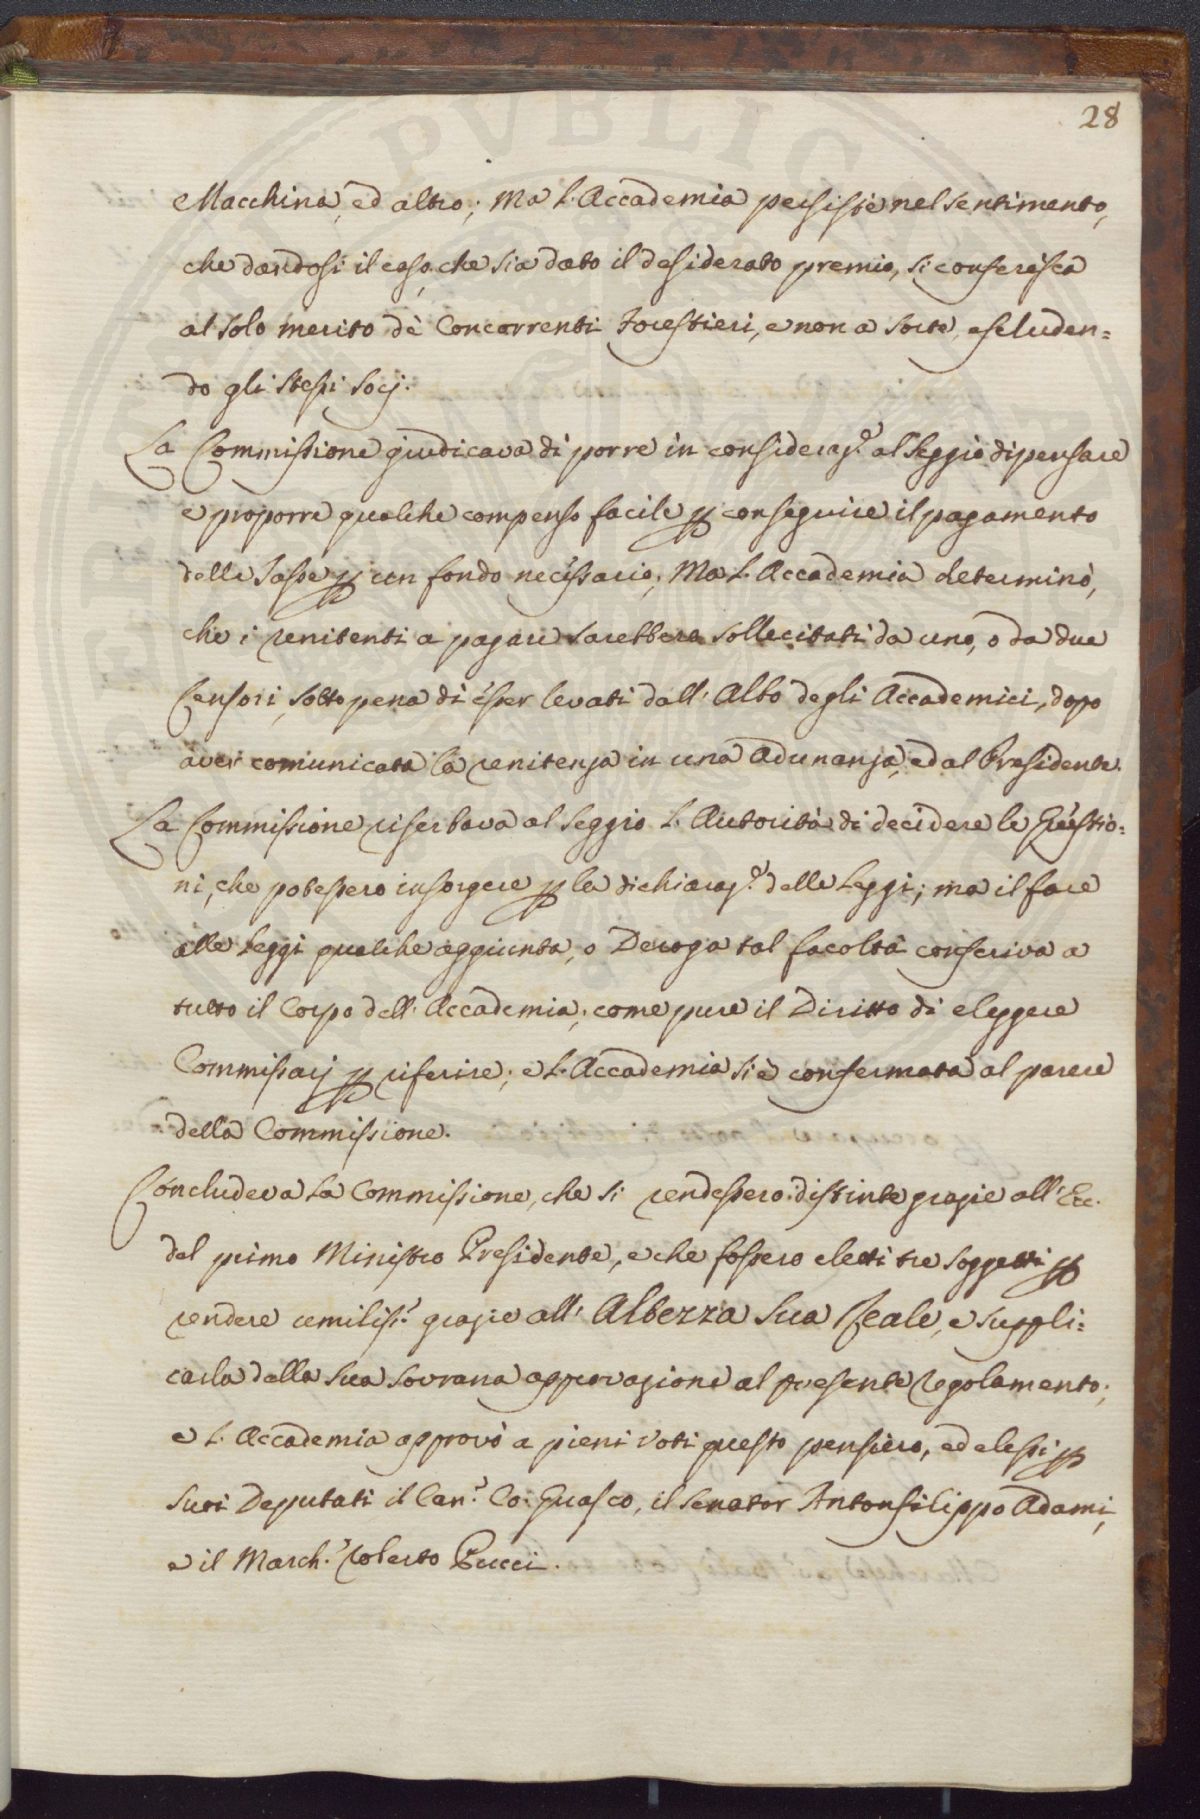 28
Macchina, ed altro; Ma l'Accademia persistè nel sentimento,
che dandosi il caso, che sia dato il desiderato premio, si conferisca
al solo merito dè Concorrenti Forestieri, e non a sorte, escluden=
do gli stessi Socj.
La Commissione giudicava di porre in consideraz.e al Seggio di pensare
e proporre qualche compenso facile p conseguire il pagamento
delle Tasse p un fondo necessario; Ma l'Accademia determinò,
che i renitenti a pagare sarebbero sollecitati da uno, o da due
Censori, sotto pena di esser levati dall'Albo degli Accademici, dopo
aver comunicata la renitenza in una Adunanza, ed al Presidente.
La Commissione riserbava al Seggio l'Autorità di decidere le Questio=
ni, che potessero insorgere p la dichiaraz.e delle Leggi; ma il fare
alle Leggi qualche aggiunta, o Deroga tal facoltà conferiva a
tutto il Corpo dell'Accademia; come pure il Diritto di eleggere
Commissarj p riferire; e l'Accademia si è confermata al parere
della Commissione.
Concludeva La Commissione, che si rendessero distinte grazie all'Ecc.
del primo Ministro Presidente, e che fossero eletti tre soggetti p
rendere umiliss.e grazie all'Altezza Sua Reale, e suppli=
carla della sua Sovrana approvazione al presente regolamento;
e l'Accademia approvò a pieni voti questo pensiero, ed elessi p
suoi Deputati il Can.e Co: Guasco, il Senator Antonfilippo Adami,
e il March.e Roberto Pucci.
PVBLIC